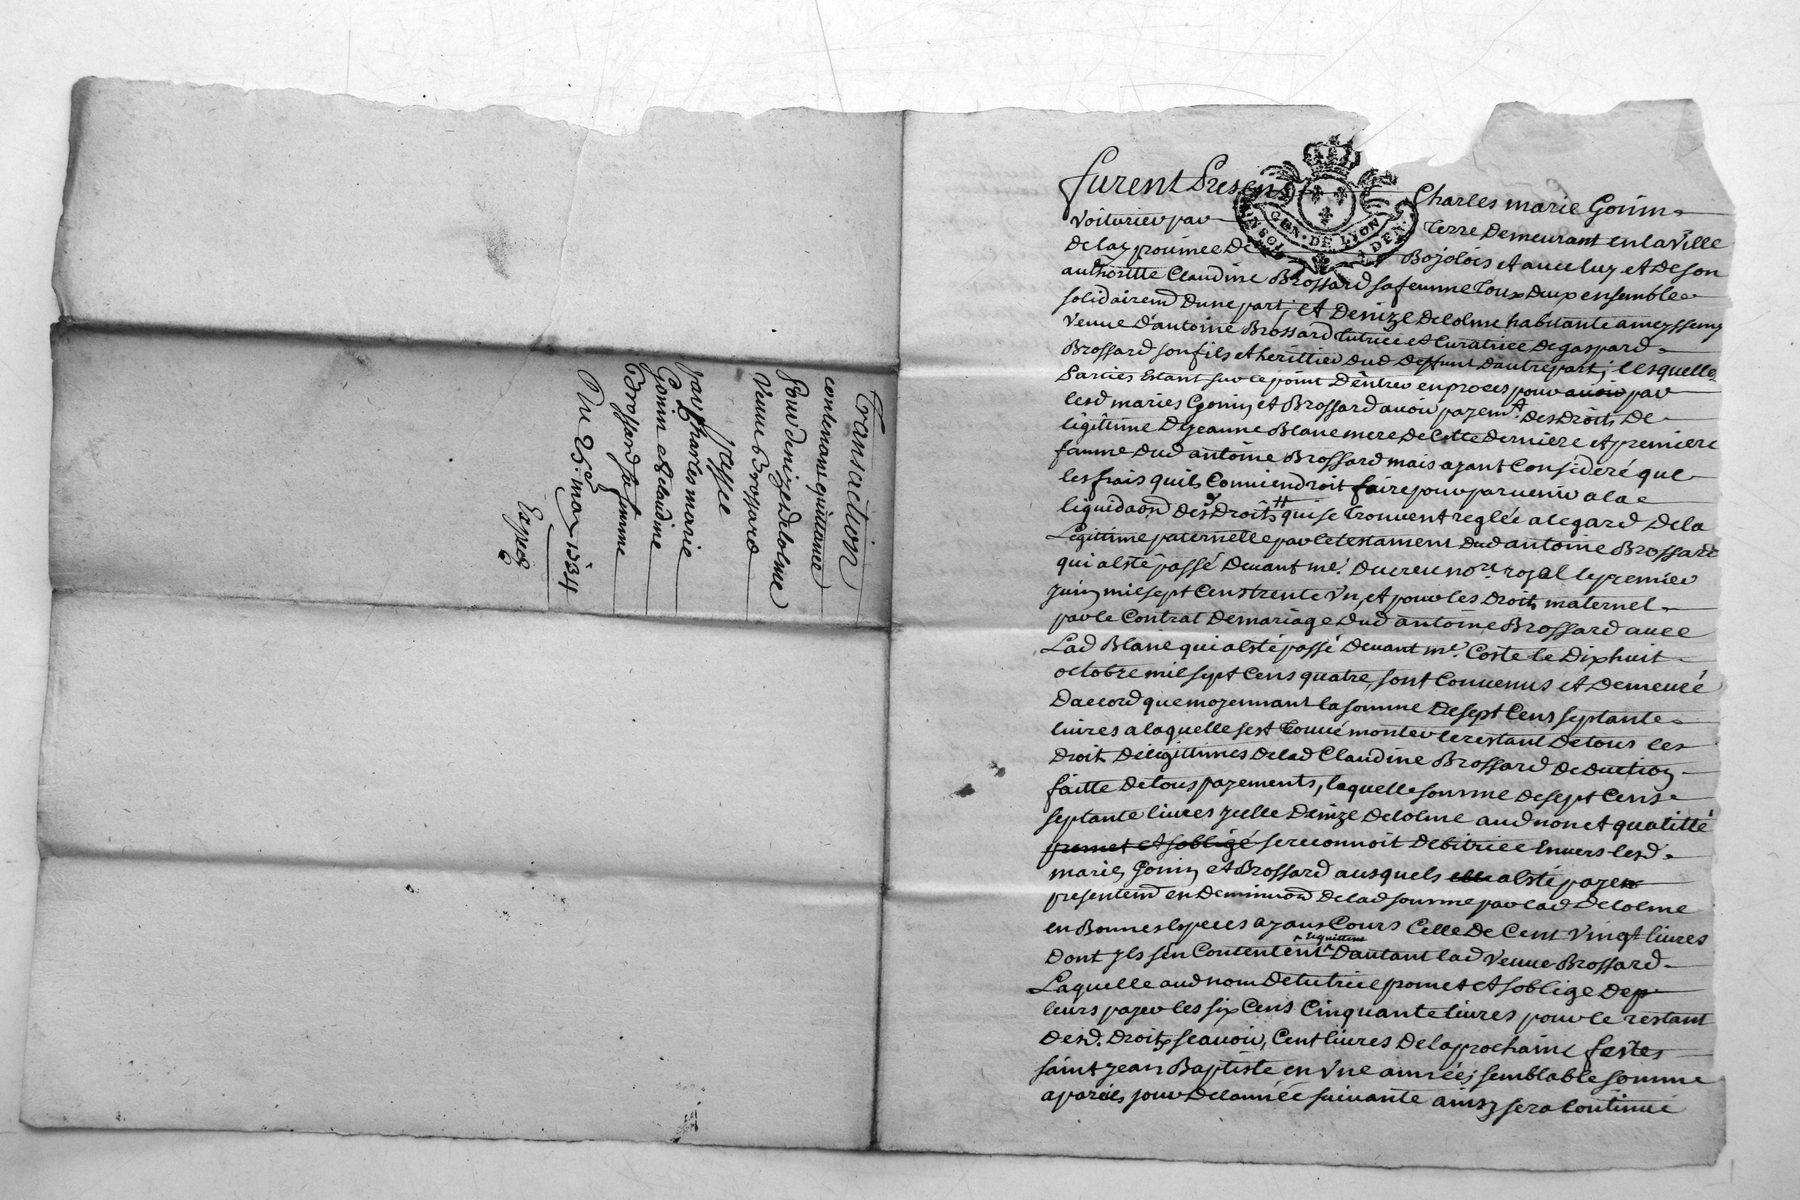 Transaction
contenant quittance
pour denize delolme
veuve Brossard
passée
par Charles marie
Gonin et claudine
Brossard sa femme
Du 25e. may 1734
Exped
furent Presens Charles marie Gonin
voiturier par Terre demeurant en la ville
de prouince de Bojolois et auec luy et de son
authoritté Claudine Brossard sa femme Tous deux ensemble
solidairemt dune part, et Denize Delolme habitante a meyssemy
Veuue d'antoine Brossard tutrice et Curatrice de gaspard
Brossard son fils et herittier dud deffunt dautre part; lesquelles
Parties Estant sur le point d'entrer en proces pour auoir par
lesd mariés Gonin et Brossard auoir payemt. des droits de
légitime de jeanne Blanc mere de cette derniere et premiere
famme dud antoine Brossard mais ayant Consideré que
les frais quils Conuiendroit faire pour paruenir a la
liquidaon des Droits # qui se trouvent reglée a legard de la
Légitime paternelle par le testament dud antoine Brossard
qui a esté passé deuant me. ducreu nore. royal le premier
juin mil sept Cens trente vn, et pour les droits maternel
par le Contrat de mariage dud antoine Brossard auec
Lad Blanc qui a esté passé deuant me. Coste le dixhuit
octobre mil sept Cens quatre, sont Conuenus et demeuré
daccord que moyennant la somme de sept Cens septante
liures a laquelle sest trouué monter le restant de tous les
droit de légittimes de lad Claudine Brossard deduction
faitte de tous payements, laquelle somme de sept Cens
septante liures jcelle Denize Delolme aud nom et qualitté
promet et soblige se reconnoit debitrice Enuers lesd.
mariés Gonin et Brossard ausquels elle a esté payer
presentemt en deminuon de lad somme par lad Delolme
en Bonnes Especes ayans Cours Celle de Cent vingt liures
Dont jls sen Contentent ^ Equittent ^ Dautant lad veuue Brossard
Laquelle aud nom de tutrice promet et soblige de
leurs payer les six Cens Cinquante liures pour le restant
desd. droits scauoir, Cent liures de la prochaine festes
saint jean Baptiste en vne année; semblable somme
a pareils jour de lannée suiuante ainsy sera Continué